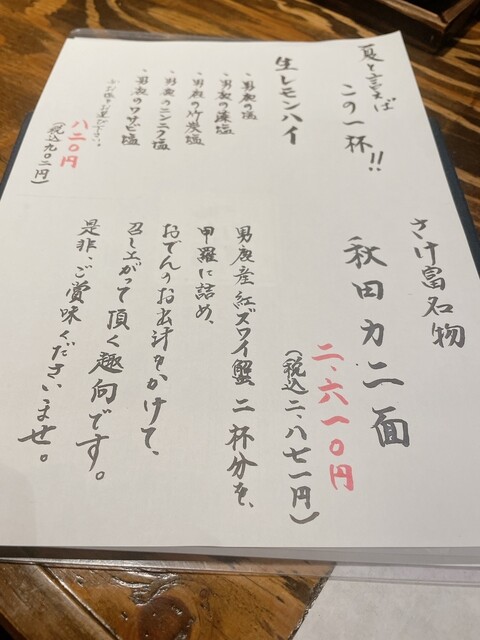 夏と言えば
この一杯!!
生レモンハイ
・男鹿の塩
・男鹿の藻塩
・男鹿の竹炭塩
・男鹿のニンニク塩
・男鹿のワサビ塩
※お塩をお選び下さい。
八二〇円
(税込九〇二円)
さけ富名物
秋田カニ面
二、六一〇円
(税込二、八七一円)
男鹿産紅ズワイ蟹二杯分を、
甲羅に詰め、
おでんのお出汁をかけて、
召し上がって頂く趣向です。
是非、ご賞味くださいませ。